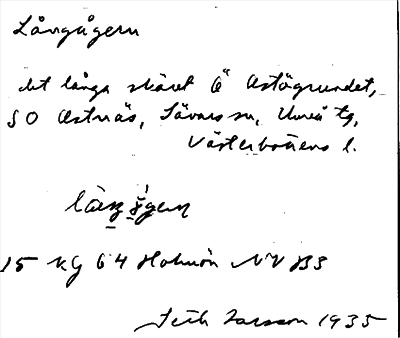 Långågern
det långa skäret Ö Ostögrundet,
SO Ostnäs, Sävars sn, Umeå tg,
Västerbottens l.
15 KG 64 Holmön NV B3
Larsson 1935